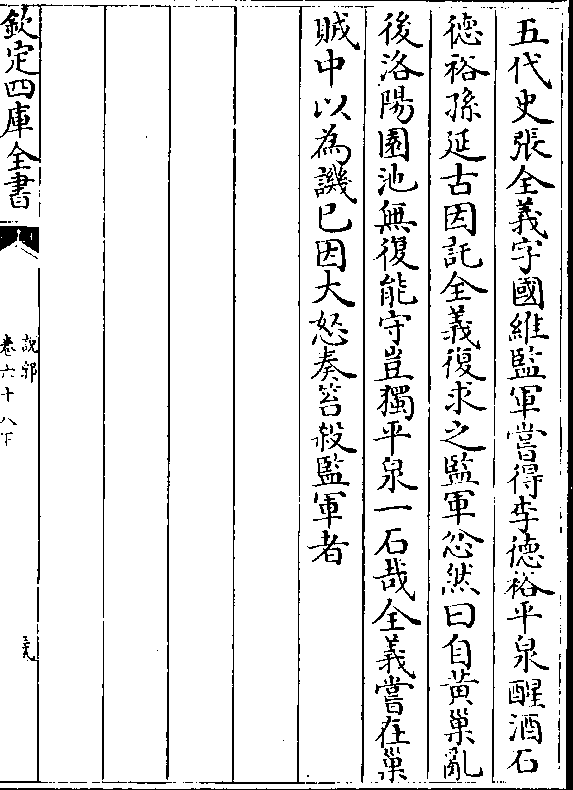 五代史張全義字國維監軍嘗得李德裕平泉醒酒石
德裕孫延古因託全義復求之監軍忿然曰自黄巢亂
後洛陽園池無復能守豈獨平泉一石哉全義嘗在巢
賊中以為譏已因大怒奏笞殺監軍者
欽定四庫全書
說郛
卷六十八下